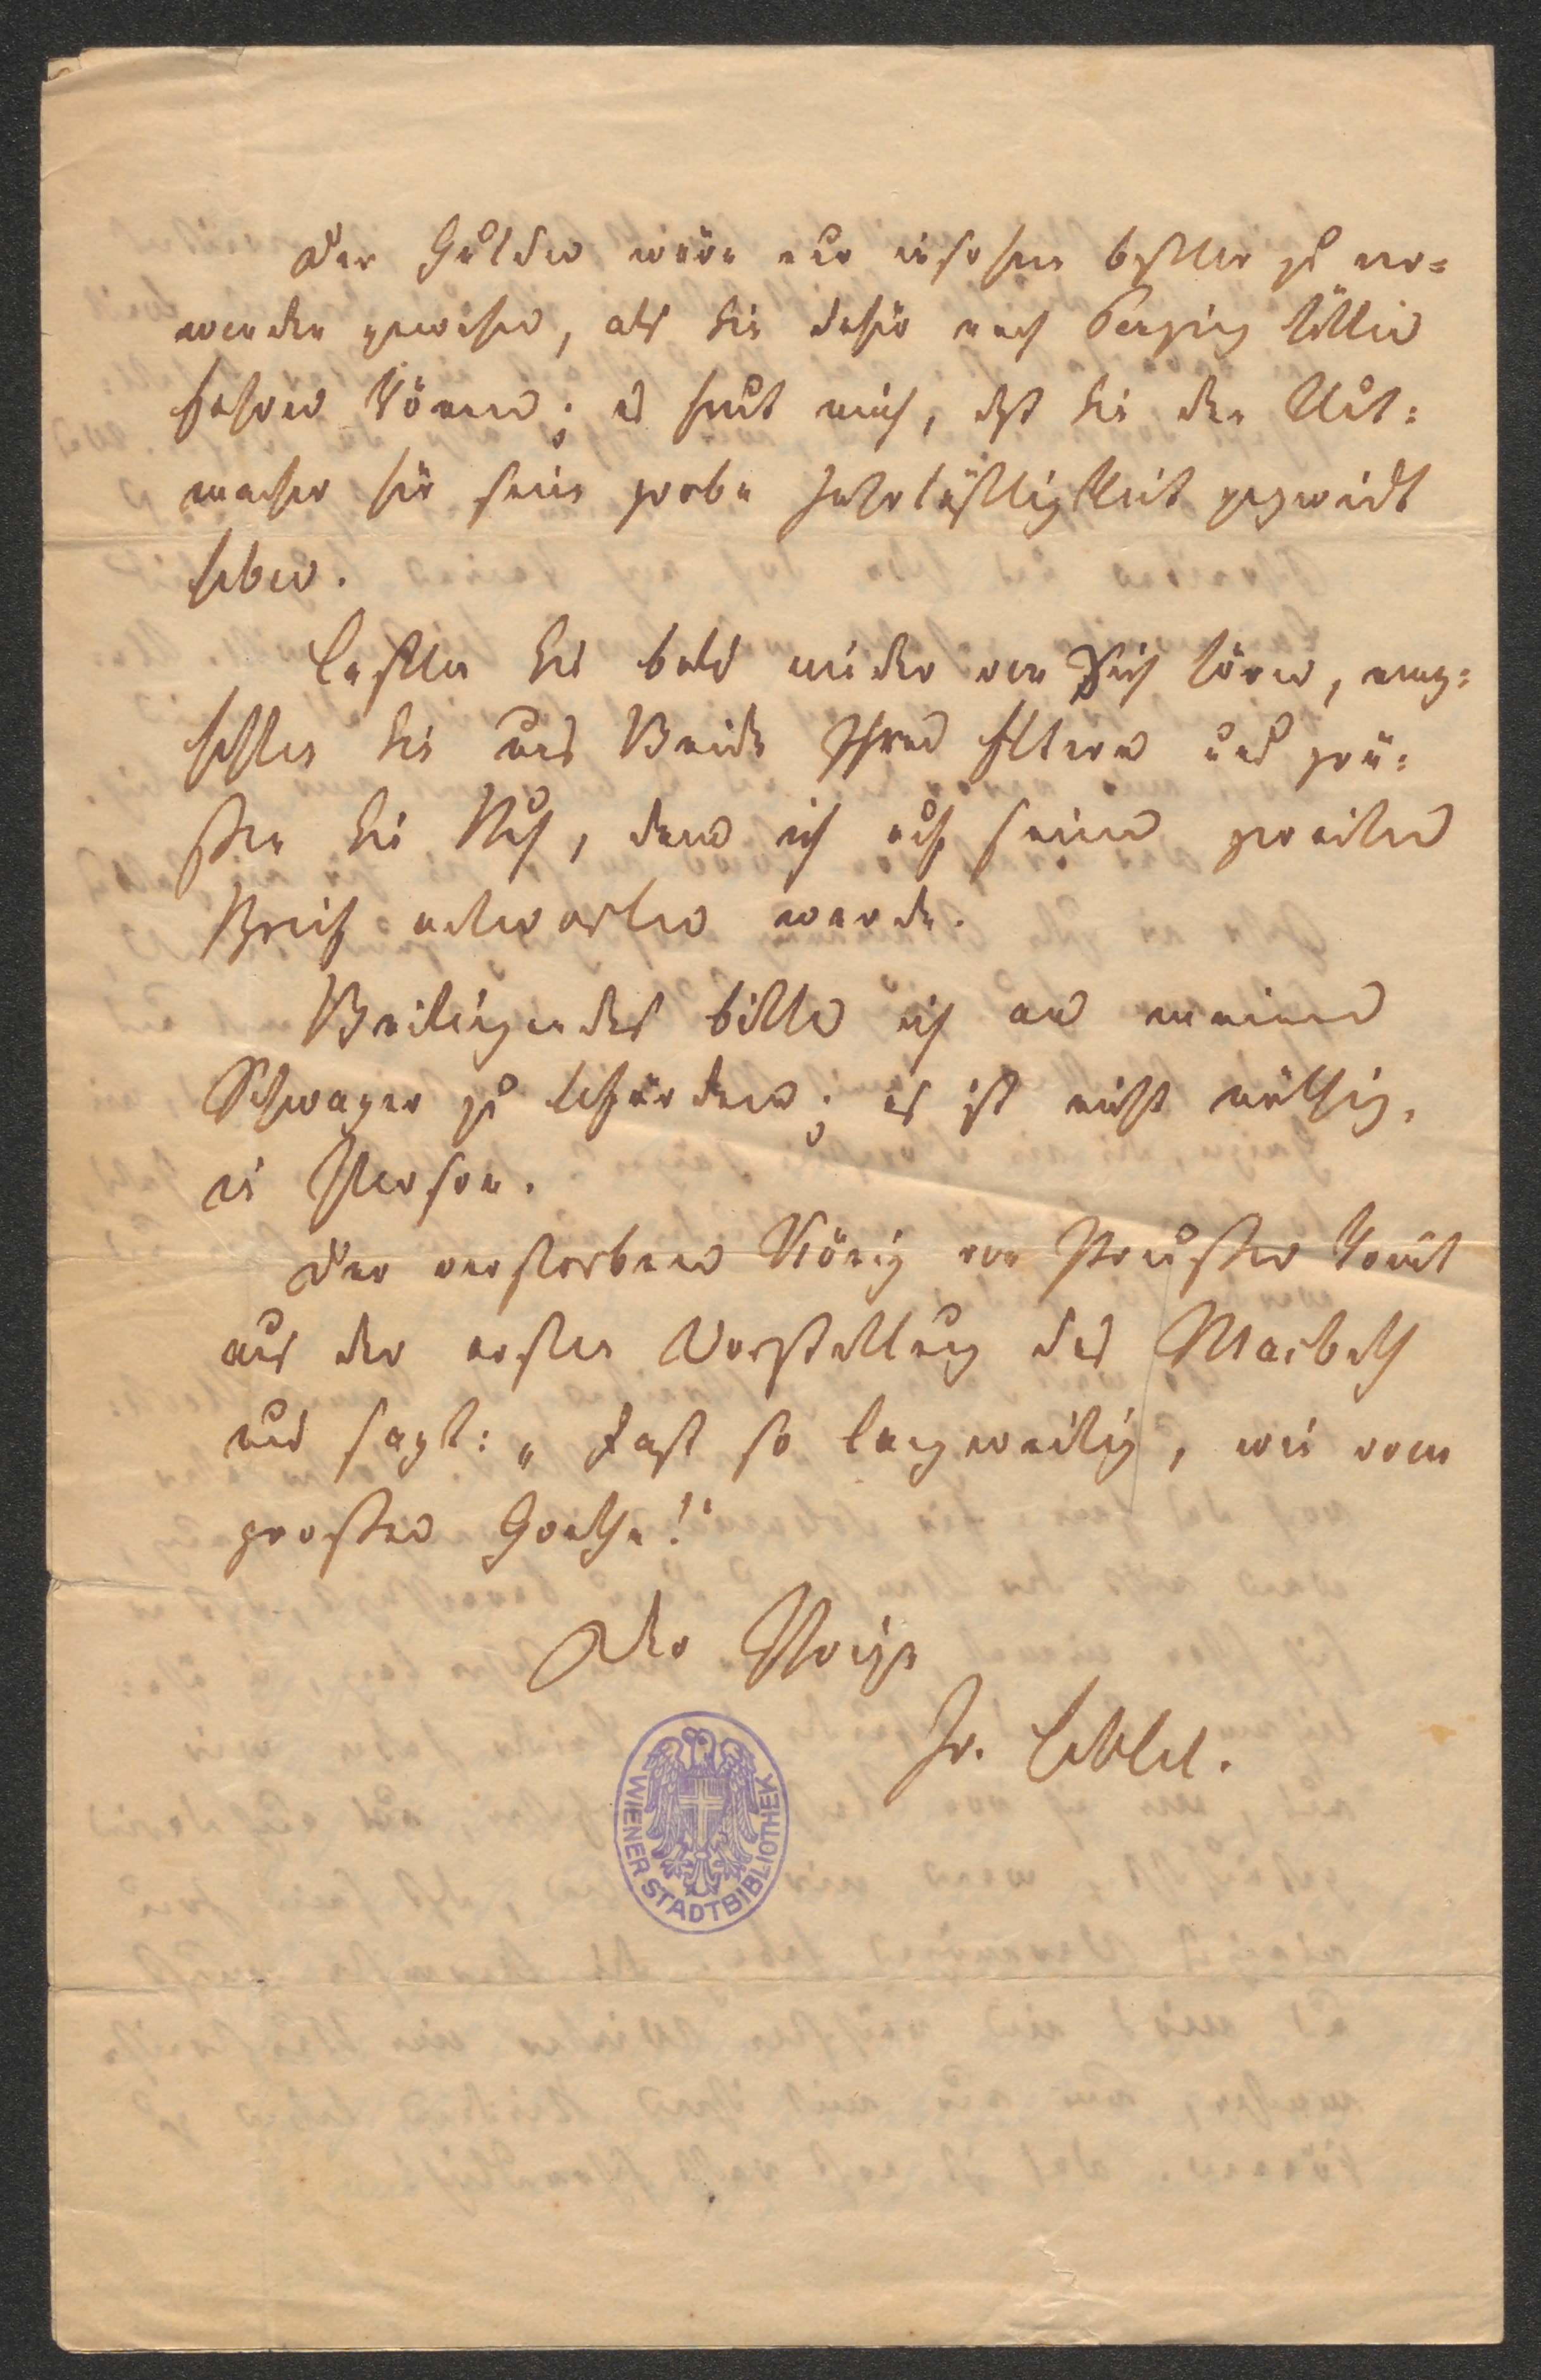 Der Gulden wäre nur insofern besser zu ver=
wenden gewesen, als Sie dafür nach Penzing hätten
fahren können; es freut mich, daß Sie den Uhr=
macher für seine grobe Fahrlässigkeit gezwickt
haben.
Lassen Sie bald wieder von Sich hören, emp=
fehlen Sie uns Beide Ihren Eltern und grü=
ßen Sie Kuh, dem ich auf seinen zweiten
Brief antworten werde.
Beiliegendes bitte ich an meinen
Schwager zu befördern; es ist nicht nöthig,
in Person.
Der verstorbene König von Preußen kommt
aus der ersten Vorstellung des Macbeth
und sagt: „Fast so langweilig, wie vom
großen Goethe!"
Der Ihrige
Fr. Hebbel.
WIENER STADTBIBLIOTHEK